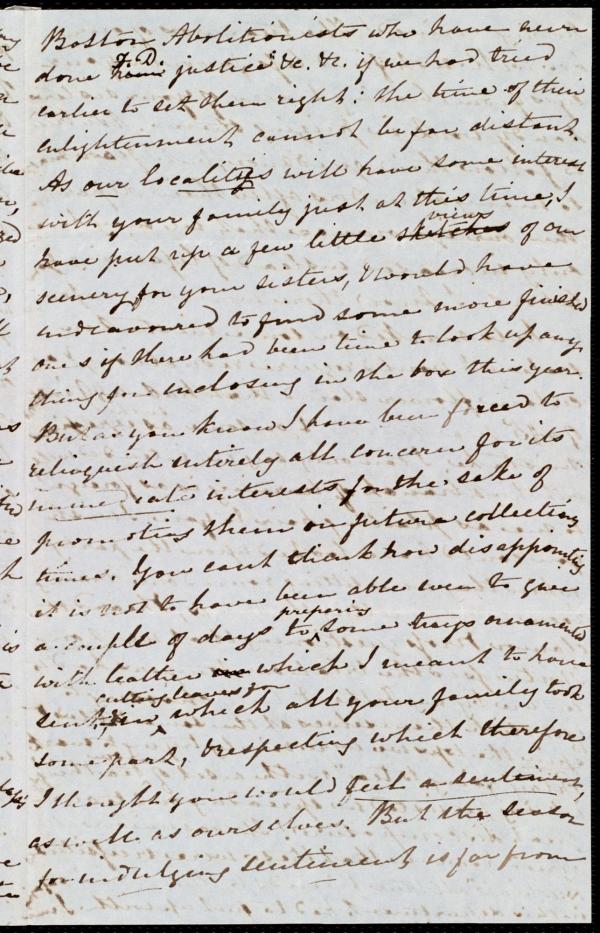 Boston Abolitionists who have never
done F.D. justice" &c. &c. if we had tried
earlier to set them right: the time of their
enlightenment cannot be far distant.
As our localities will have some interest
with your family just at this time, I
have put up a few little sketches views of our
scenery for your sisters, & would have
endeavoured to find some more finished
ones if there had been time to look up any
thing for inclosing in the box this year.
But as you know I have been forced to
relinquish entirely all concern for its
immediate interests for the sake of
promoting them in future collecting
times. You can't think how disappointing
it is not to have been able even to give
a couple of days to preparing some trays ornamented
with leather in which I meant to have
sent, cutting leaves for which all your family took
some part, & respecting which therefore
I thought you would feel a sentiment,
as well as ourselves. But the season
for indulging sentiment is far from